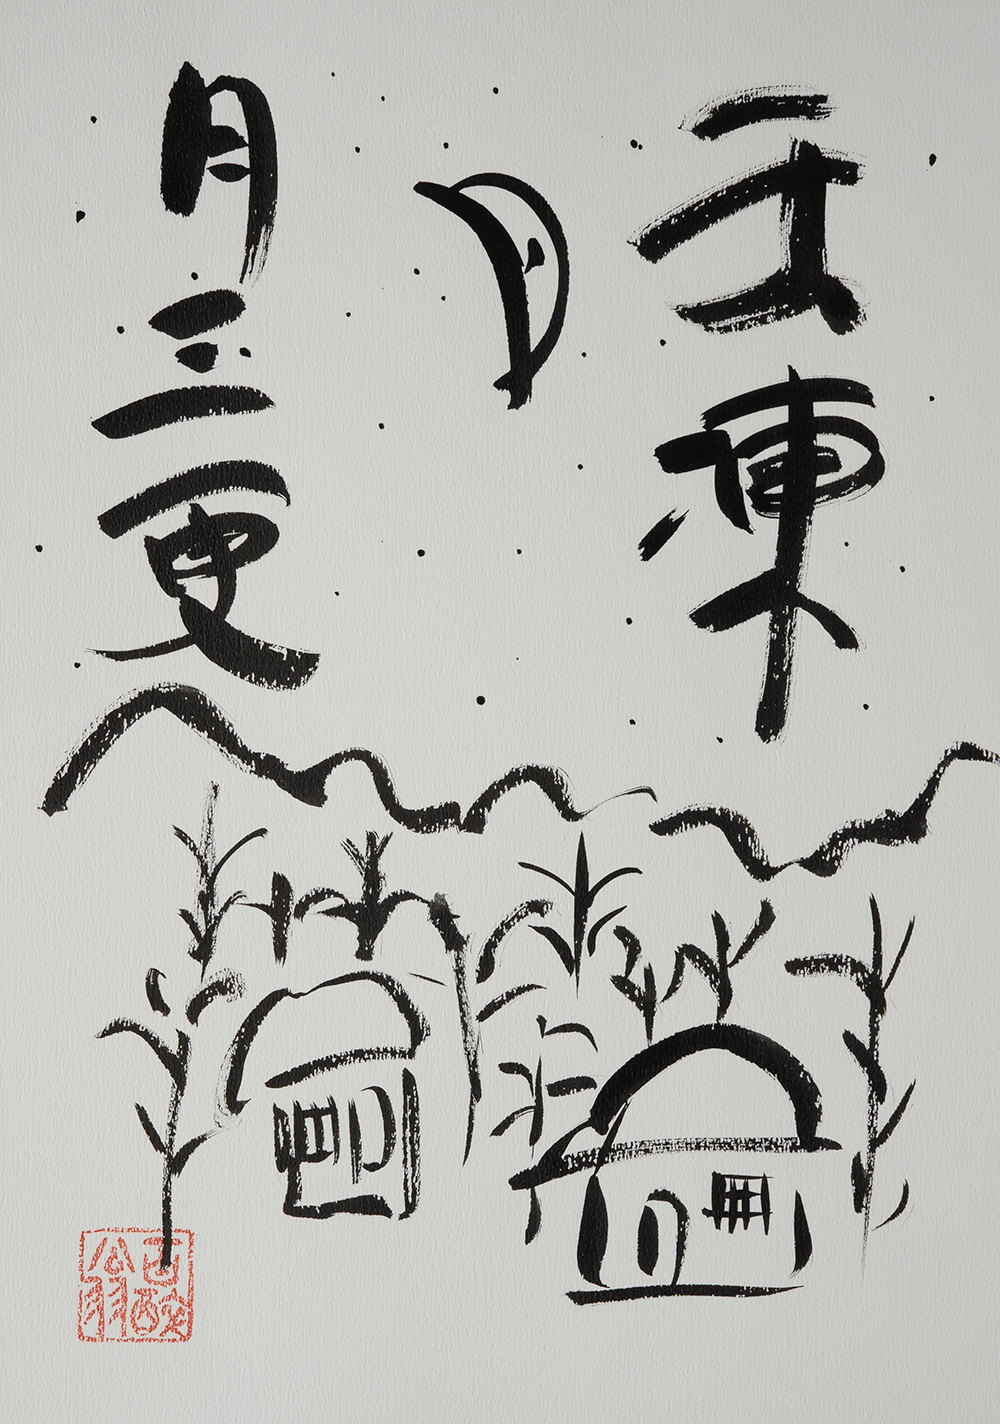 玉凍
月三更